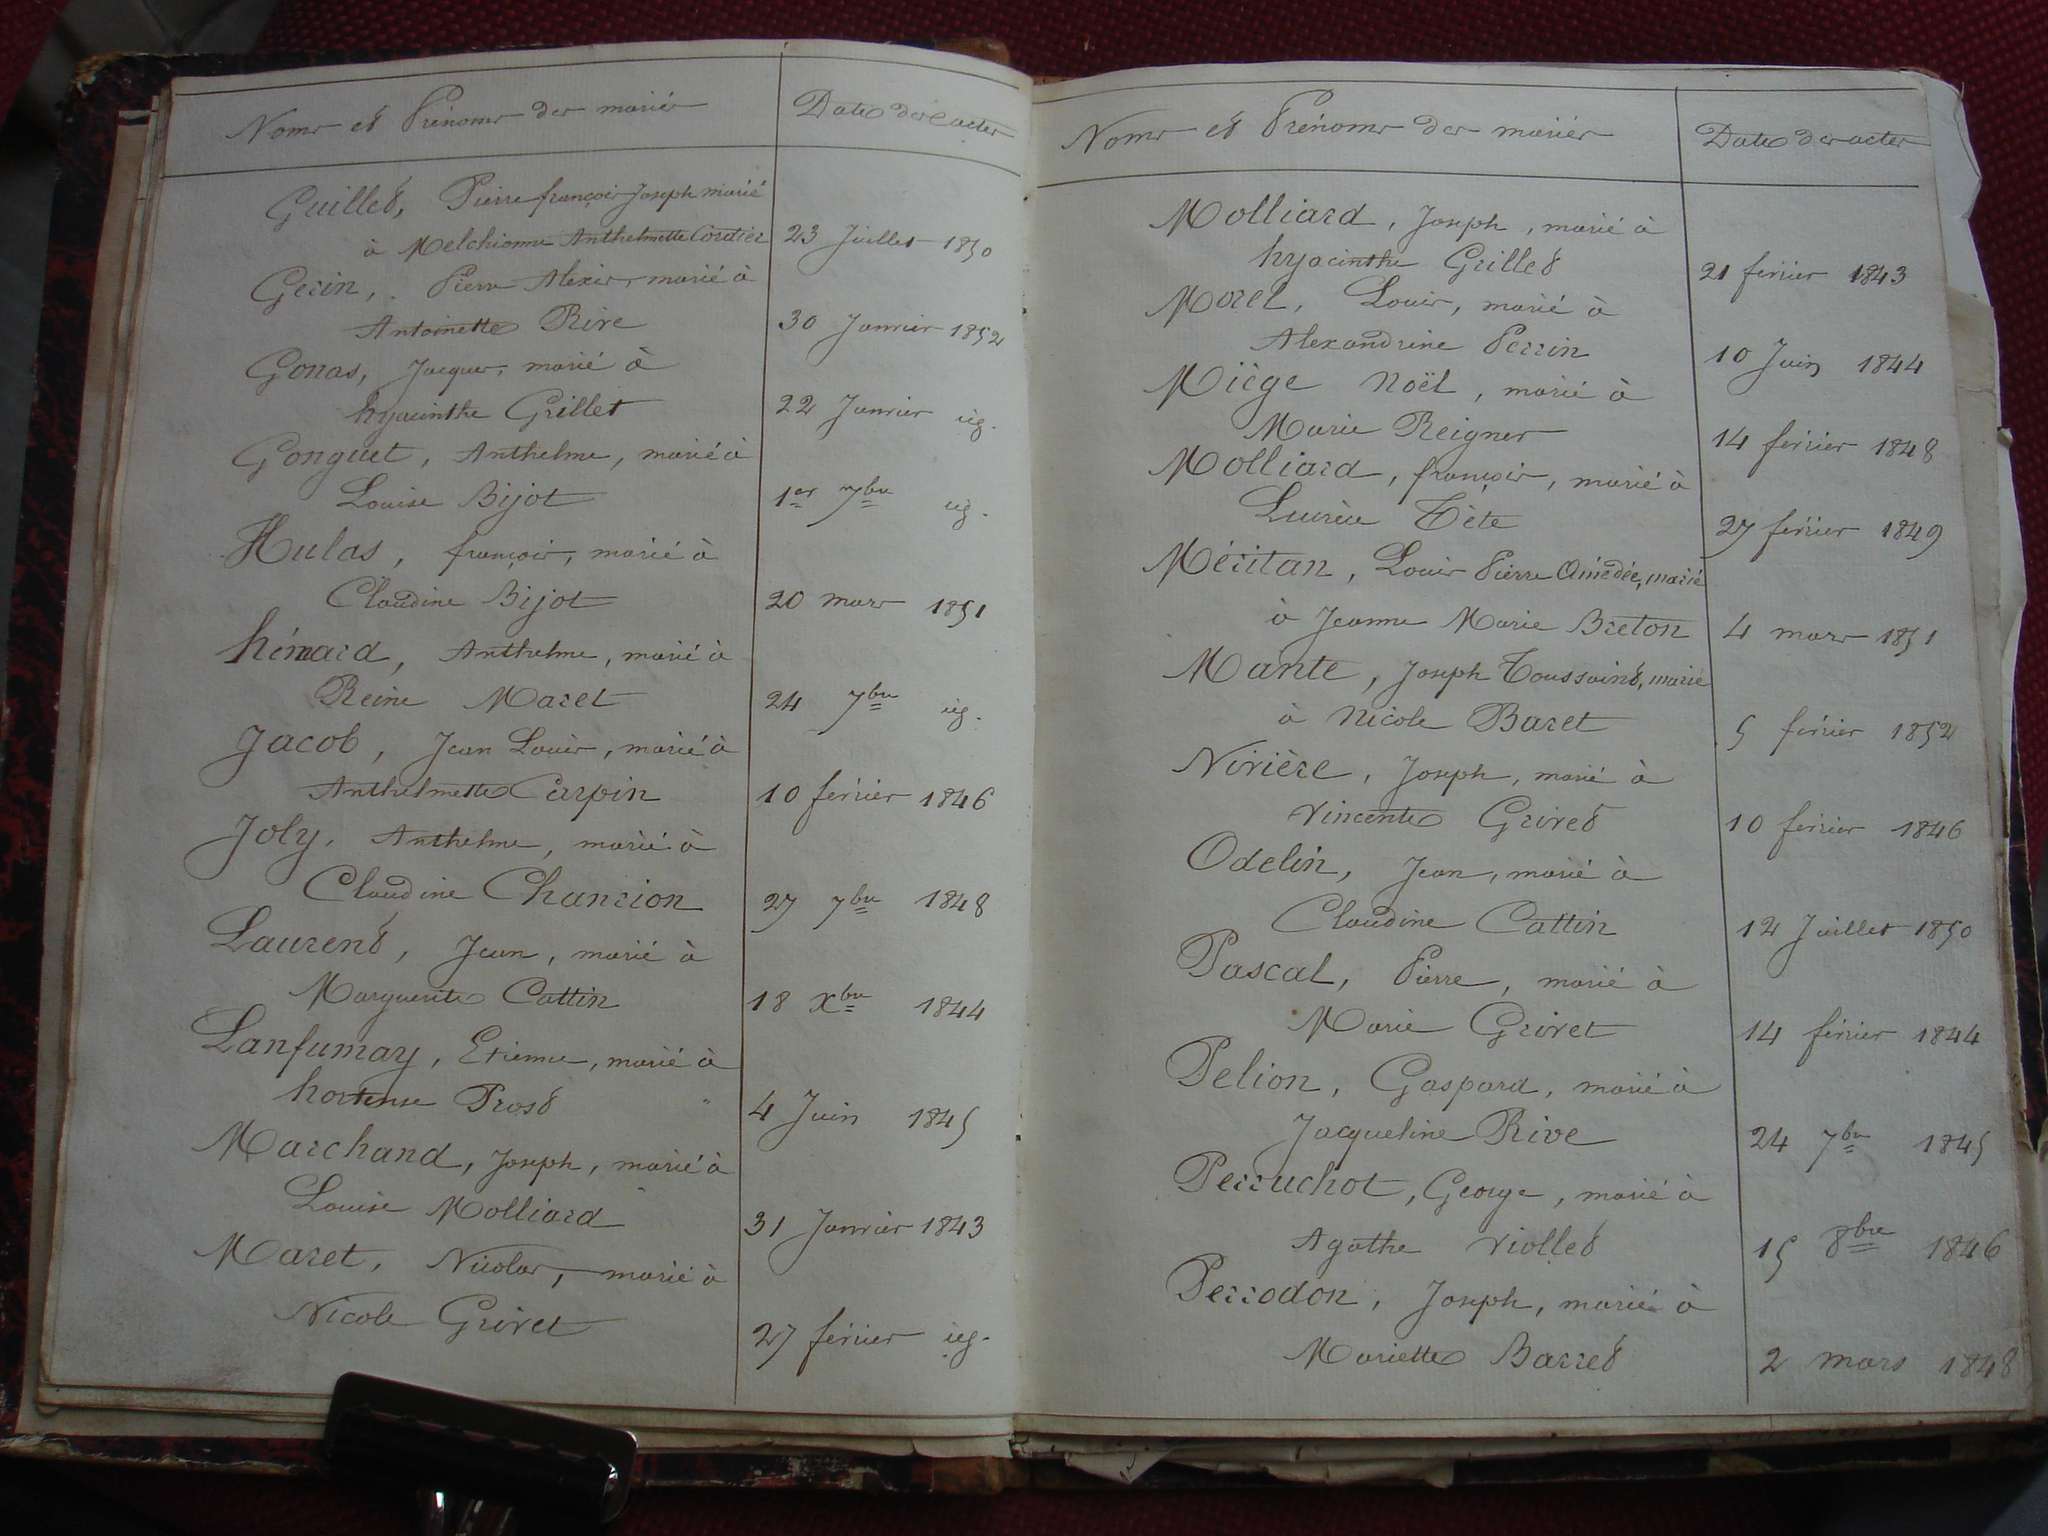 Noms et Prénoms des mariés Date des actes
Guillet, Pierre françois Joseph marié
à Melchionne Anthelmette Cordier 23 Juillet 1850
Gerin, Pierre Alexis marié à
Antoinette Rive 30 Janvier 1852
Gonas, Jacques, marié à
hyacinthe Grillet 22 Janvier id.
Gonguet, Anthelme, marié à
Louise Bijot 1er 7bre id.
Hulas, françois, marié à
Claudine Bijot 20 mars 1851
hémard, Anthelme, marié à
Reine Maret 24 7bre id.
Jacob, Jean Louis, marié à
Anthelmette Carpin 10 février 1846
Joly, Anthelme, marié à
Claudine Chanrion 27 7bre 1848
Laurent, Jean, marié à
Marguerite Cattin 18 Xbre 1844
Lanfumay, Etienne, marié à
hortense Prost 4 Juin 1845
Marchand, Joseph, marié à
Louise Molliard 31 Janvier 1843
Maret, Nicolas, marié à
Nicole Grivet 27 février id.
Noms et Prénoms des mariés Date des actes
Molliard, Joseph, marié à
hyacinthe Grillet 21 février 1843
Morel, Louis, marié à
Alexandrine Perrin 10 Juin 1844
Miège Noël, marié à
Marie Reigner 14 février 1848
Molliard, françois, marié à
Lucrèce Tête 27 février 1849
Méritan, Louis Pierre Amédée, marié
à Jeanne Marie Breton 4 mars 1851
Mante, Joseph Toussaint, marié
à Nicole Baret 5 février 1852
Nivière, Joseph, marié à
Vincente Grivet 10 février 1846
Odelin, Jean, marié à
Claudine Cattin 12 Juillet 1850
Pascal, Pierre, marié à
Marie Grivet 14 février 1844
Pelion, Gaspard, marié à
Jacqueline Rive 24 7bre 1845
Perruchot, George, marié à
Agathe Viollet 15 8bre 1846
Perrodon, Joseph, marié à
Mariette Barret 2 mars 1848